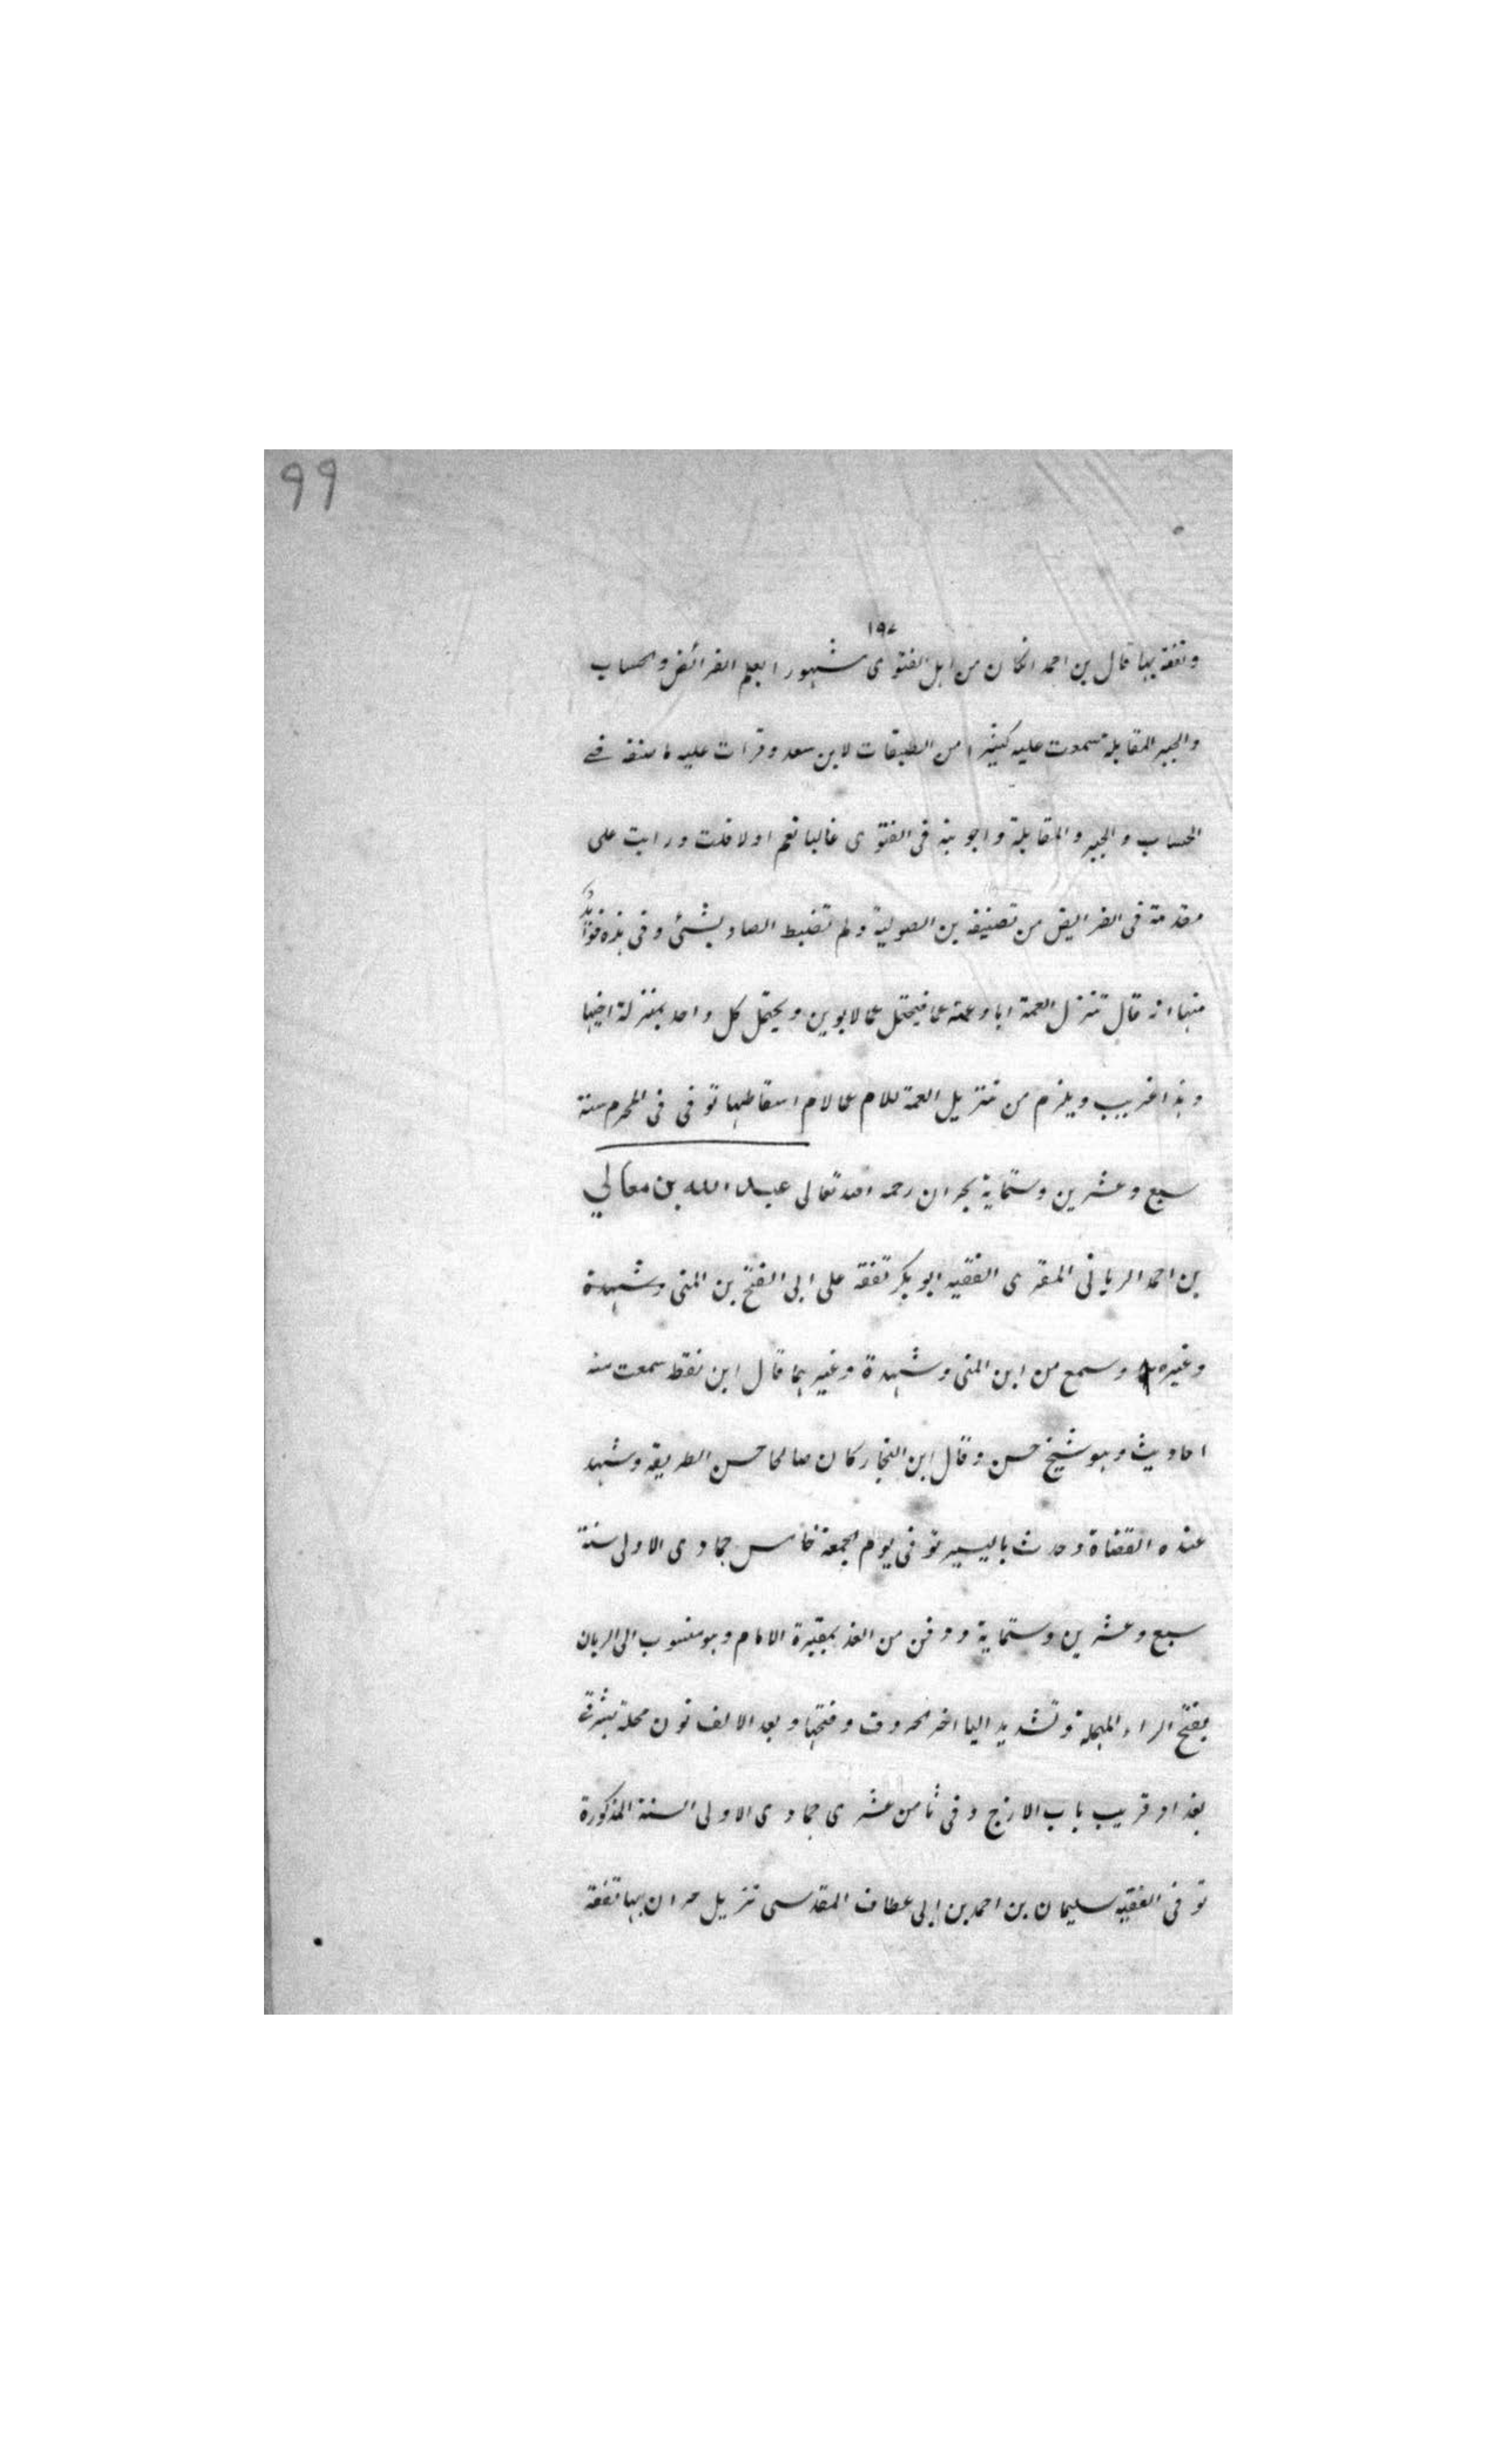 99
١٩٧
وتفقه بها قال بن احمد انكان من اهل الفتوى مشهورا بعلم الفرائض والحساب
والجبر المقابلة سمعت عليه كثيرا من الطبقات لابن سعد وقرات عليه ما صنفه في
الحساب والجبر والمقابلة واجوبته في الفتوى غالبا نعم او لا قلت ورايت على
مقدمة في الفرايض من تصنيفه بن الصولية ولم تضبط الصاد بشئ وفي هذه فوائد
منها انه قال تنزل العمة ابا وعمته عما فيحتمل عما لابوين ويحتمل كل واحد بمنزلة اخيها
وهذا غريب ويلزم من تنزيل العمة للام عما لام اسقاطها توفى في المحرم سنة
سبع وعشرين وستماية بحران رحمه الله تعالى عبد الله بن معالي
بن احمد الرياني المقرى الفقيه ابو بكر تفقه على ابي الفتح بن المنى وشهدة
وغيره وسمع من ابن المنى وشهدة وغيرهما قال ابن نقطه سمعت منه
احاديث وهو شيخ حسن وقال ابن النجار كان صالحا حسن الطريقه وشهد
عنده القضاة وحدث باليسير توفى يوم الجمعة خامس جمادى الاولى سنة
سبع وعشرين وستماية ودفن من الغد بمقبرة الامام وهو منسوب الى الريان
بفتح الراء المهملة وتشديد اليا اخر الحروف وفتحها وبعد الالف نون محلة بشرقى
بغداد قريب باب الازج وفي ثامن عشرى جمادى الاولى السنة المذكورة
توفى الفقيه سليمان بن احمد بن ابى عطاف المقدسى نزيل حران بها تفقه